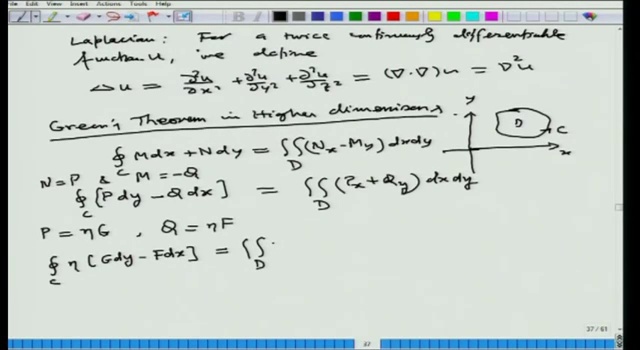 File Edit View Insert Actions Tools Help
Laplacian: For a twice continuously differentiable
function u, we define
Δu = ∂²u/∂x² + ∂²u/∂y² + ∂²u/∂z² = (∇·∇)u = ∇²u
Green's Theorem in Higher dimensions.
y
D
C
x
∮_C Mdx + Ndy = ∬_D (N_x - M_y) dxdy
N = P & M = -Q
∮_C [Pdy - Qdx] = ∬_D (P_x + Q_y) dxdy
P = ηG , Q = ηF
∮_C η [Gdy - Fdx] = ∬_D
37 / 61
37